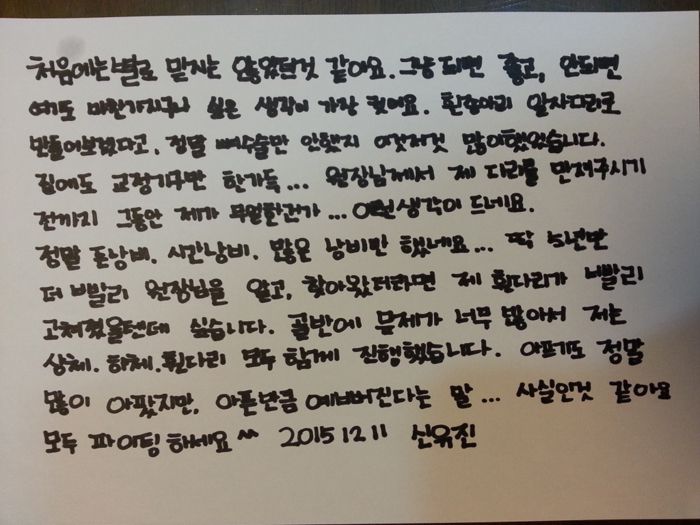 처음에는 별로 믿지는 않았던것 같아요. 그냥 되면 좋고, 안되면
여도 마찬가지구나 싶은 생각이 가장 컸어요. 휜종아리 일자다리로
만들어보겠다고, 정말 뼈수술만 안했지 이것저것 많이했었습니다.
집에도 교정기구만 한가득... 원장님께서 제 다리를 만져주시기
전까지 그동안 제가 무얼한건가... 이런생각이 드네요.
정말 돈낭비. 시간낭비. 많은 낭비만 했네요... 딱 5년만
더 빨리 원장님을 알고, 찾아왔더라면 제 휜다리가 빨리
고쳐졌을텐데 싶습니다. 골반에 문제가 너무 많아서 저는
상체. 하체. 휜다리 모두 함께 진행했습니다. 아프기도 정말
많이 아팠지만, 아픈만큼 예뻐진다는 말... 사실인것 같아요
모두 파이팅 하세요^^ 2015 12 11 신유진